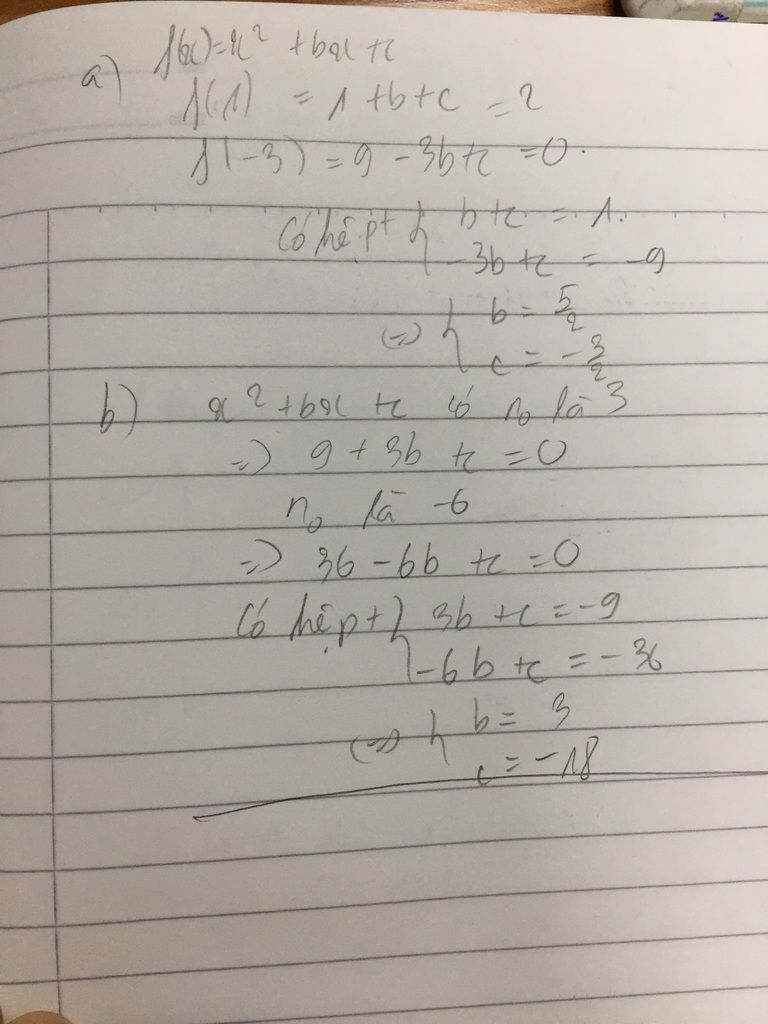 a) f(x)=x² +bx+c
f(1) = 1+b+c = 2
f(-3) = 9 - 3b+c =0.
Có hệ pt { b+c = 1.
-3b +c = -9
(=) { b = 5/2
c = - 3/2
b) x² +bx +c có no là 3
=) 9 + 3b +c =0
no là -6
=) 36 - 6b +c =0
Có hệ pt { 3b +c = -9
-6b +c = -36
(=) { b = 3
c = -18